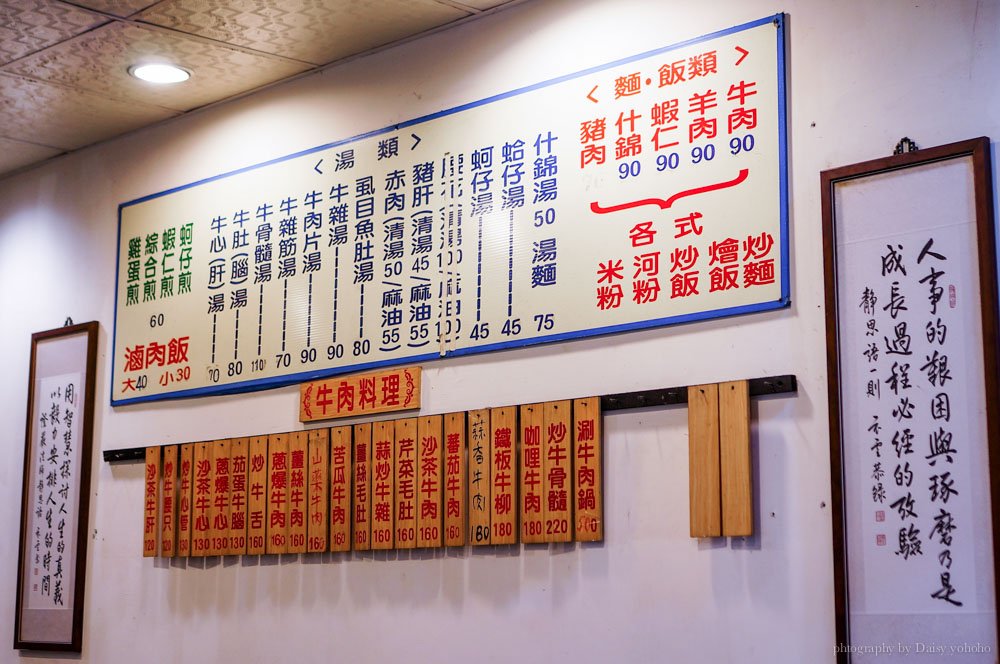 <麵·飯類>
牛肉 90
羊肉 90
蝦仁 90
什錦 90
豬肉
各式
炒麵
燴飯
炒飯
河粉
米粉
<湯類>
什錦湯 50 湯麵 75
蛤仔湯 45
蚵仔湯 45
豬肝(清湯45/麻油55)
赤肉(清湯50/麻油55)
虱目魚肚湯 80
牛雜湯 90
牛肉片湯 90
牛雜筋湯 70
牛骨髓湯 110
牛肚(腦)湯 80
牛心(肝)湯 70
蚵仔煎
蝦仁煎
綜合煎
雞蛋煎
60
滷肉飯
大40 小30
牛肉料理
涮牛肉鍋
炒牛骨髓 220
咖哩牛肉 180
鐵板牛柳 180
蒜香牛肉 180
蕃茄牛肉 160
沙茶牛肉 160
芹菜毛肚 160
蒜炒牛雜 160
薑絲毛肚 160
苦瓜牛肉 160
160
薑絲牛肉 160
蔥爆牛肉 160
炒牛舌 160
茄蛋牛腦 130
蔥爆牛心 130
沙茶牛心 130
沙茶牛肝 120
人事的艱困與琢磨乃是
成長過程必經的考驗
靜思語一則
用智慧探討人生的真義
以毅力安排人生的時間
photography by Daisy yohoho